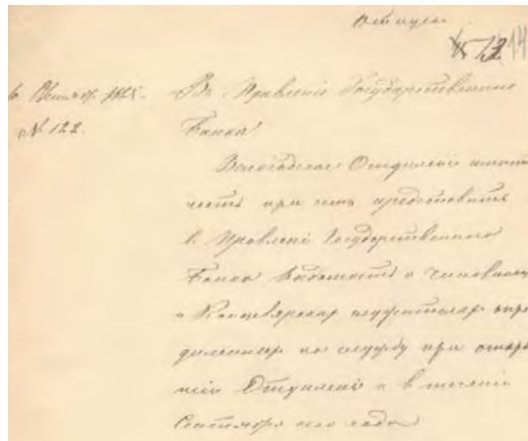 Отпускъ
13 14
6 Октября 1865.
№ 122.
Въ Правленіе Государственнаго
Банка
Вологодское Отдѣленіе имѣетъ
честь при семъ представить
въ Правленіе Государственнаго
Банка вѣдомость о чиновникахъ
и Канцелярскихъ служителяхъ опре
дѣленныхъ на службу при откры
тіи Отдѣленія и въ теченіи
Сентября сего года